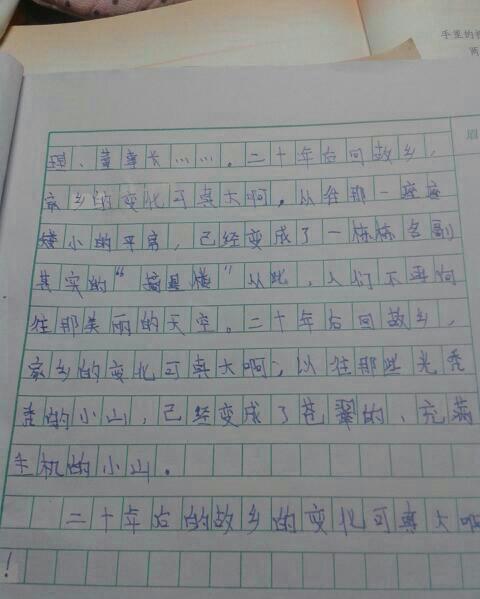 手里的
两
眉
理、董事长……。二十年后回故乡,
家乡的变化可真大啊。以往那一座座
矮小的平房,已经变成了一栋栋名副
其实的“摘星楼”从此,人们不再向
往那美丽的天空。二十年后回故乡,
家乡的变化可真大啊;以往那些光秃
秃的小山,已经变成了苍翼的、充满
生机的小山。
二十年后的故乡的变化可真大啊
!